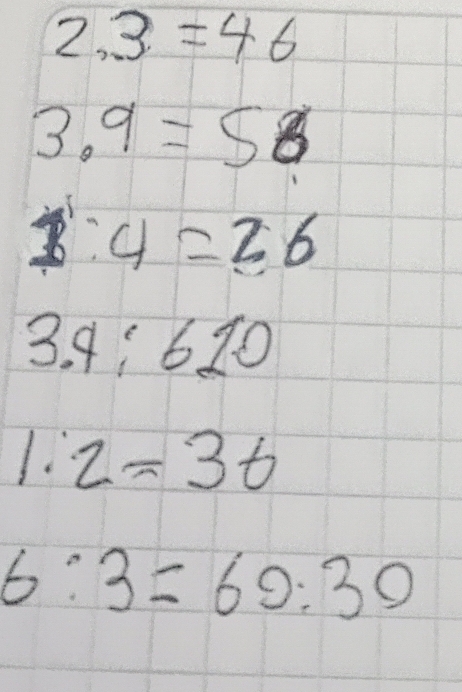 2.3=46
3.9=56
1:4=26
3.9:610
1:2=36
6:3=60:30